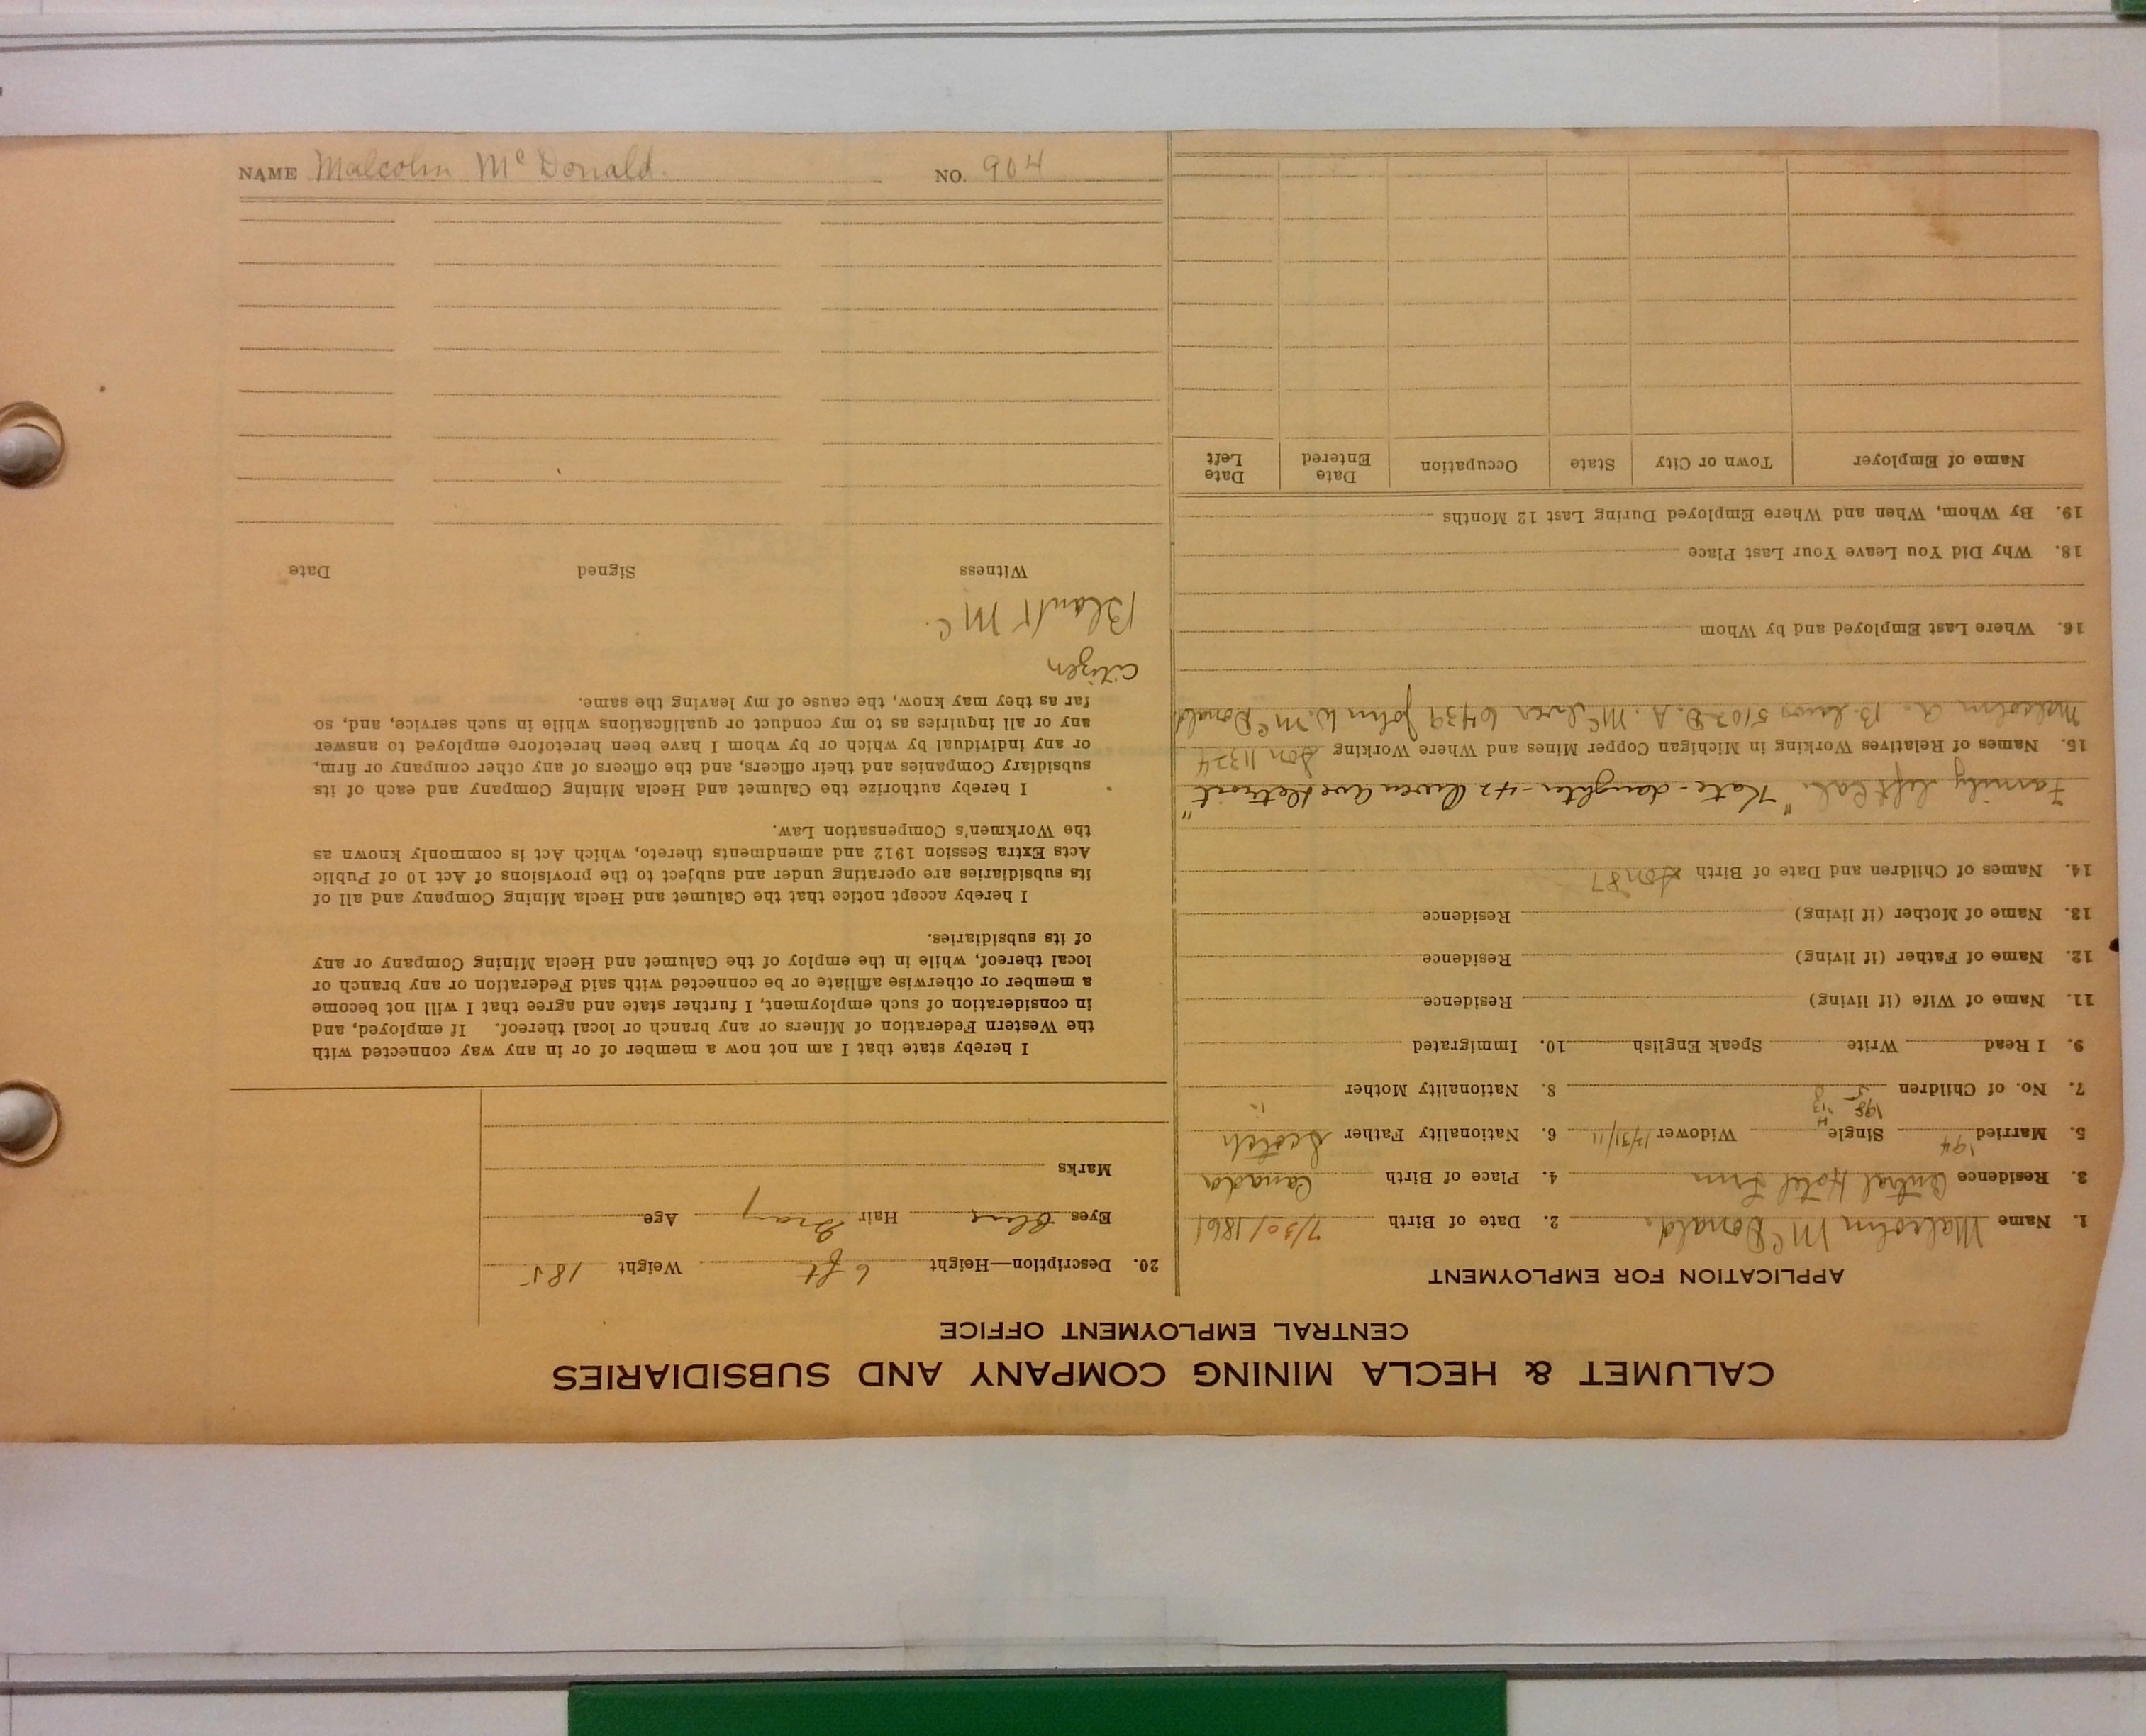 CALUMET & HECLA MINING COMPANY AND SUBSIDIARIES
CENTRAL EMPLOYMENT OFFICE
APPLICATION FOR EMPLOYMENT
1. Name Malcolm McDonald. 2. Date of Birth 7/30/1861
3. Residence Central Hotel 4. Place of Birth Canada
5. Married '94 Single Widower 12/31/11 6. Nationality Father Scotch
7. No. of Children 8. Nationality Mother "
9. I Read Write Speak English 10. Immigrated
11. Name of Wife (if living) Residence
12. Name of Father (if living) Residence
13. Name of Mother (if living) Residence
14. Names of Children and Date of Birth
Family left Cal. "Kate - daughter - 42 Ave Detroit"
15. Names of Relatives Working in Michigan Copper Mines and Where Working Son 11324
Malcolm 5102 D. A. McIver 6439 John W. McDonald
16. Where Last Employed and by Whom
18. Why Did You Leave Your Last Place
19. By Whom, When and Where Employed During Last 12 Months
Name of Employer Town or City State Occupation Date Entered Date Left
20. Description—Height 6 ft Weight 185
Eyes Blue Hair Gray Age
Marks
I hereby state that I am not now a member of or in any way connected with
the Western Federation of Miners or any branch or local thereof. If employed, and
in consideration of such employment, I further state and agree that I will not become
a member or otherwise affiliate or be connected with said Federation or any branch or
local thereof, while in the employ of the Calumet and Hecla Mining Company or any
of its subsidiaries.
I hereby accept notice that the Calumet and Hecla Mining Company and all of
its subsidiaries are operating under and subject to the provisions of Act 10 of Public
Acts Extra Session 1912 and amendments thereto, which Act is commonly known as
the Workmen's Compensation Law.
I hereby authorize the Calumet and Hecla Mining Company and each of its
subsidiary Companies and their officers, and the officers of any other company or firm,
or any individual by which or by whom I have been heretofore employed to answer
any or all inquiries as to my conduct or qualifications while in such service, and, so
far as they may know, the cause of my leaving the same.
Citizen
Blank Mc.
Witness Signed Date
NAME Malcolm McDonald. NO. 904